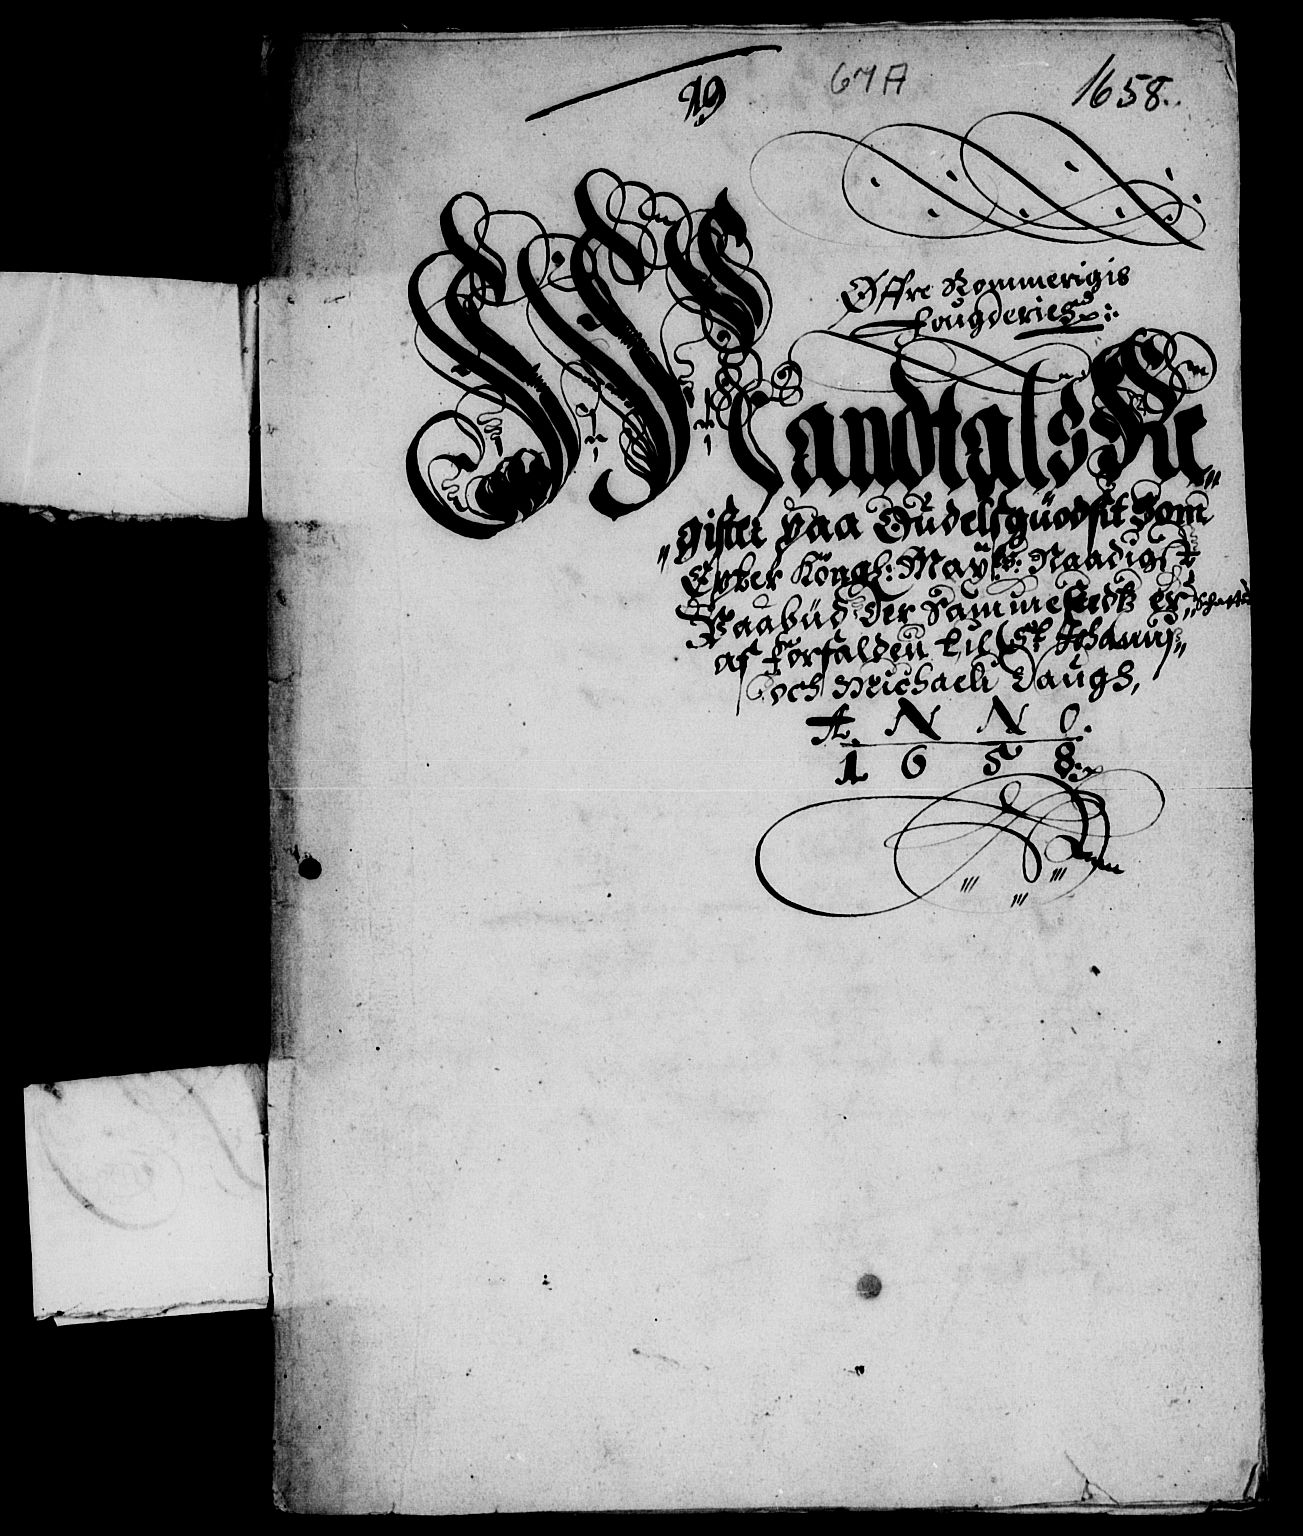 19
67A
1658.
Øffre Rommerigis
fougderies
Mandtals Re„
„gister paa Oudelsguodsit Som
Epter Kongl: Maÿtz: Naadigste
Paabud der Sammesteds er
af forfalden til St: Johannj„
och Michaeli Daugs,
A N N O.
1 6 5 8